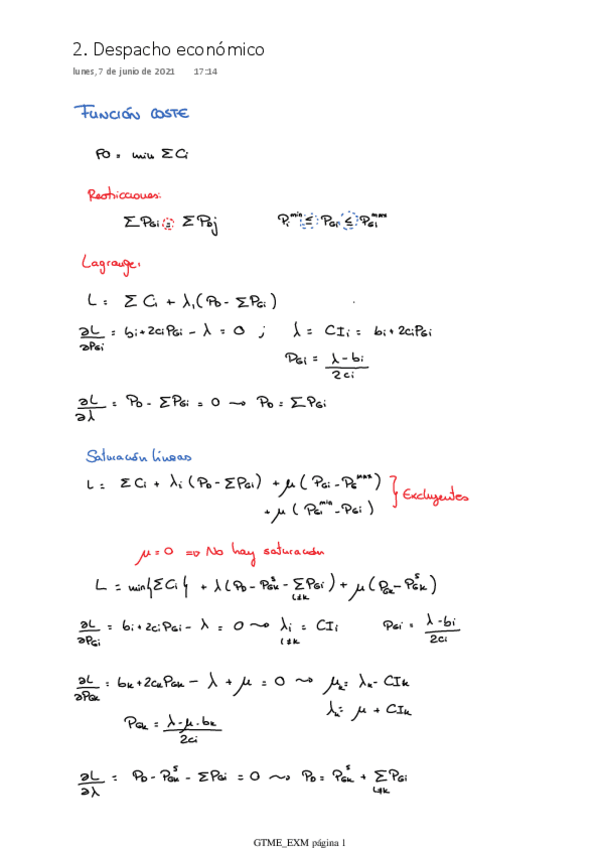 2. Despacho económico
lunes, 7 de junio de 2021 17:14
FUNCIÓN COSTE
FO = min ΣCi
Restricciones:
ΣPGi = ΣPDj Pi^min ≤ PGi ≤ PGi^max
Lagrange:
L = ΣCi + λ,(PD - ΣPGi)
∂L/∂PGi = bi + 2ciPGi - λ = 0 ; λ = CIi = bi + 2ciPGi
PGi = (λ - bi)/2ci
∂L/∂λ = PD - ΣPGi = 0 → PD = ΣPGi
Saturación líneas
L = ΣCi + λi(PD - ΣPGi) + μ(PGi - PG^max)
+ μ(PGi^min - PGi) } Excluyentes
μ = 0 => No hay saturación
L = min{ΣCi} + λ(PD - PGk^s - Σ_{i≠k} PGi) + μ(PGk - PGk^s)
∂L/∂PGi = bi + 2ciPGi - λ = 0 → λi = CIi i≠k PGi = (λ - bi)/2ci
∂L/∂PGk = bk + 2ckPGk - λ + μ = 0 → μk = λk - CIk
λk = μ + CIk
PGk = (λ - μ - bk)/2ci
∂L/∂λ = PD - PGk^s - ΣPGi = 0 → PD = PGk^s + Σ_{i≠k} PGi
GTME_EXM página 1